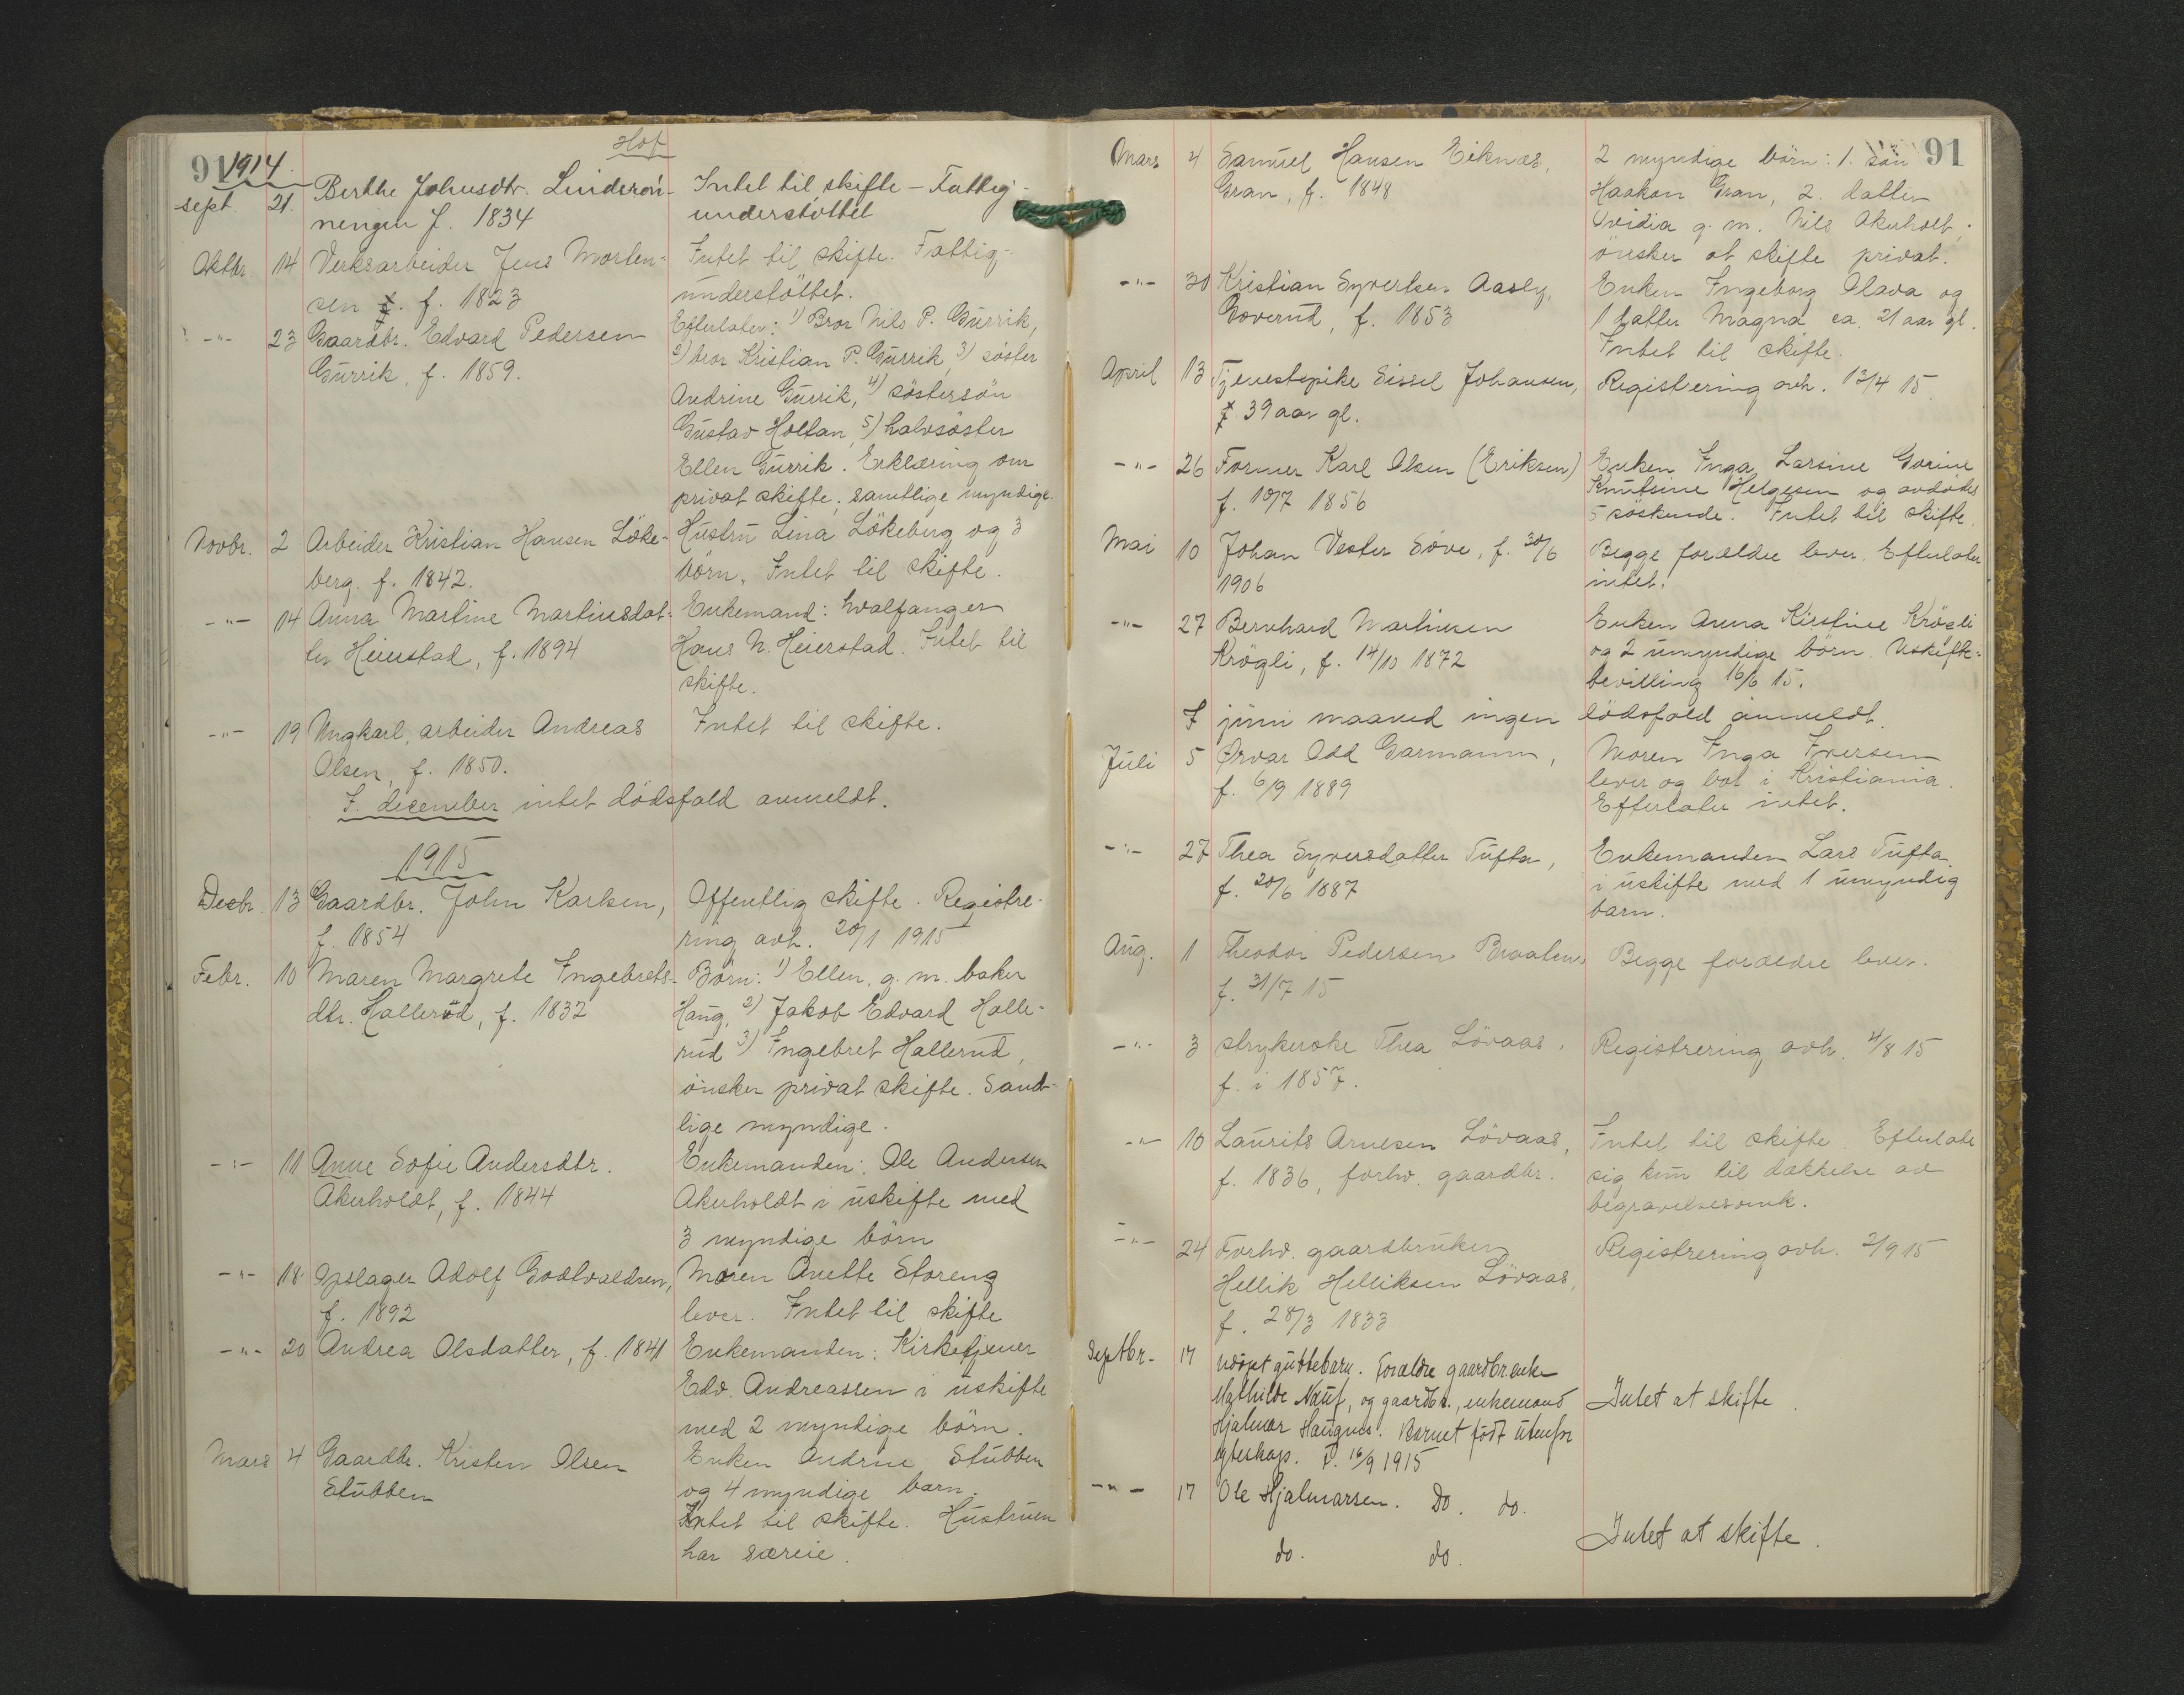 Hof
91 1914.
sept. 21. Berthe Johnsdtr. Linderön- Intet til skifte - Fattig-
nengen f. 1834 understöttet
Oktbr. 14 Verksarbeider Jens Morten- Intet til skifte. Fattig-
sen f. 1823 understöttet.
-"- 23 Gaardbr. Edvard Pedersen Efterlater: 1) Bror Nils P. Gurrik,
Gurrik, f. 1859. 2) bror Kristian P. Gurrik, 3) söster
Andrine Gurrik, 4) söstersön
Gustav Holtan, 5) halvsöster
Ellen Gurrik. Erklæring om
privat skifte, samtlige myndige.
Novbr. 2 Arbeider Kristian Hansen Löke- Hustru Lina Lökeberg og 3
berg. f. 1842. börn. Intet til skifte.
-"- 14 Anna Martine Martinsdat- Enkemand: hvalfanger
ter Heierstad, f. 1894 Hans N. Heierstad. Intet til
skifte.
-"- 19 Ungkarl, arbeider Andreas Intet til skifte.
Olsen, f. 1850.
I december intet dödsfald anmeldt.
1915
Decbr. 13 Gaardbr. John Karlsen, Offentlig skifte. Registre-
f. 1854 ring avh. 20/1 1915
Febr. 10 Maren Margrete Ingebrets- Börn: 1) Ellen, g. m. baker
dtr. Halleröd, f. 1832 Haug, 2) Jakob Edvard Halle-
rud 3) Ingebret Hallerud,
önsker privat skifte. Samt-
lige myndige.
-"- 11 Anne Sofie Andersdtr. Enkemanden: Ole Andersen
Akerholdt, f. 1844 Akerholdt i uskifte med
3 myndige börn
-"- 18 Opslager Adolf Godtvaldsen, Moren Anette Storeng
f. 1892 lever. Intet til skifte
-"- 20 Andrea Olsdatter, f. 1841 Enkemanden: Kirketjener
Edv. Andreassen i uskifte
med 2 myndige börn.
Mars 4 Gaardbr. Kristen Olsen Enken Andrine Stubben
Stubben og 4 myndige barn.
Intet til skifte. Hustruen
har særeie.
91
Mars 4 Samuel Hansen Eiknes, 2 myndige börn: 1. sön
Gran, f. 1848 Haakon Gran, 2. datter
Ovidia g. m. Nils Akerholt,
önsker at skifte privat.
-"- 30 Kristian Syvertsen Aasly, Enken Ingeborg Olava og
Goverud, f. 1853 1 datter Magna ca. 21 aar gl.
Intet til skifte.
April 13 Tjenestepike Sissel Johansen, Registrering avh. 13/4 15
39 aar gl.
-"- 26 Former Karl Olsen (Eriksen) Enken Inga Larsine Gorine
f. 10/7 1856 Knutsine Helgesen og avdödes
5 söskende. Intet til skifte.
Mai 10 Johan Vester Söve, f. 30/6 Begge forældre lever. Efterlater
1906 intet.
-"- 27 Bernhard Martinsen Enken Anna Kirstine Krögli
Krögli, f. 14/10 1872 og 2 umyndige börn. Uskifte-
bevilling 16/6 15.
I juni maaned ingen dödsfald anmeldt.
Juli 5 Ørvar Odd Garmann, Moren Inga Iversen
f. 6/9 1889 lever og bor i Kristiania.
Efterlater intet.
-"- 27 Thea Syversdatter Tufta, Enkemanden Lars Tufta
f. 20/6 1887 i uskifte med 1 umyndig
barn.
Aug. 1 Theodor Pedersen Braaten, Begge forældre lever.
f. 31/7 15
-"- 3 strykerske Thea Lövaas. Registrering avh. 4/8 15
f. i 1857.
-"- 10 Laurits Arnesen Lövaas, Intet til skifte. Efterlate
f. 1836, forhv. gaardbr. sig kun til dækkelse av
begravelsesomk.
-"- 24 Forhv. gaardbruker Registrering avh. 2/9 15
Hellik Helliksen Lövaas,
f. 28/3 1833
Septbr. 17 Udöpt guttebarn. Forældre gaardbr.enke
Mathilde Næuf, og gaardbr., enkemand Intet at skifte.
Hjalmar Haugnes. Barnet födt utenfor
egteskap. F. 16/9 1915
-"- 17 Ole Hjalmarsen. Do. do.
do. do. Intet at skifte.